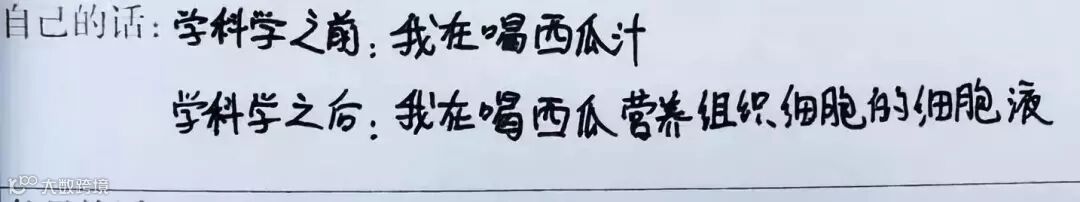 自己的话：学科学之前：我在喝西瓜汁
学科学之后：我在喝西瓜营养组织细胞的细胞液
大数跨境